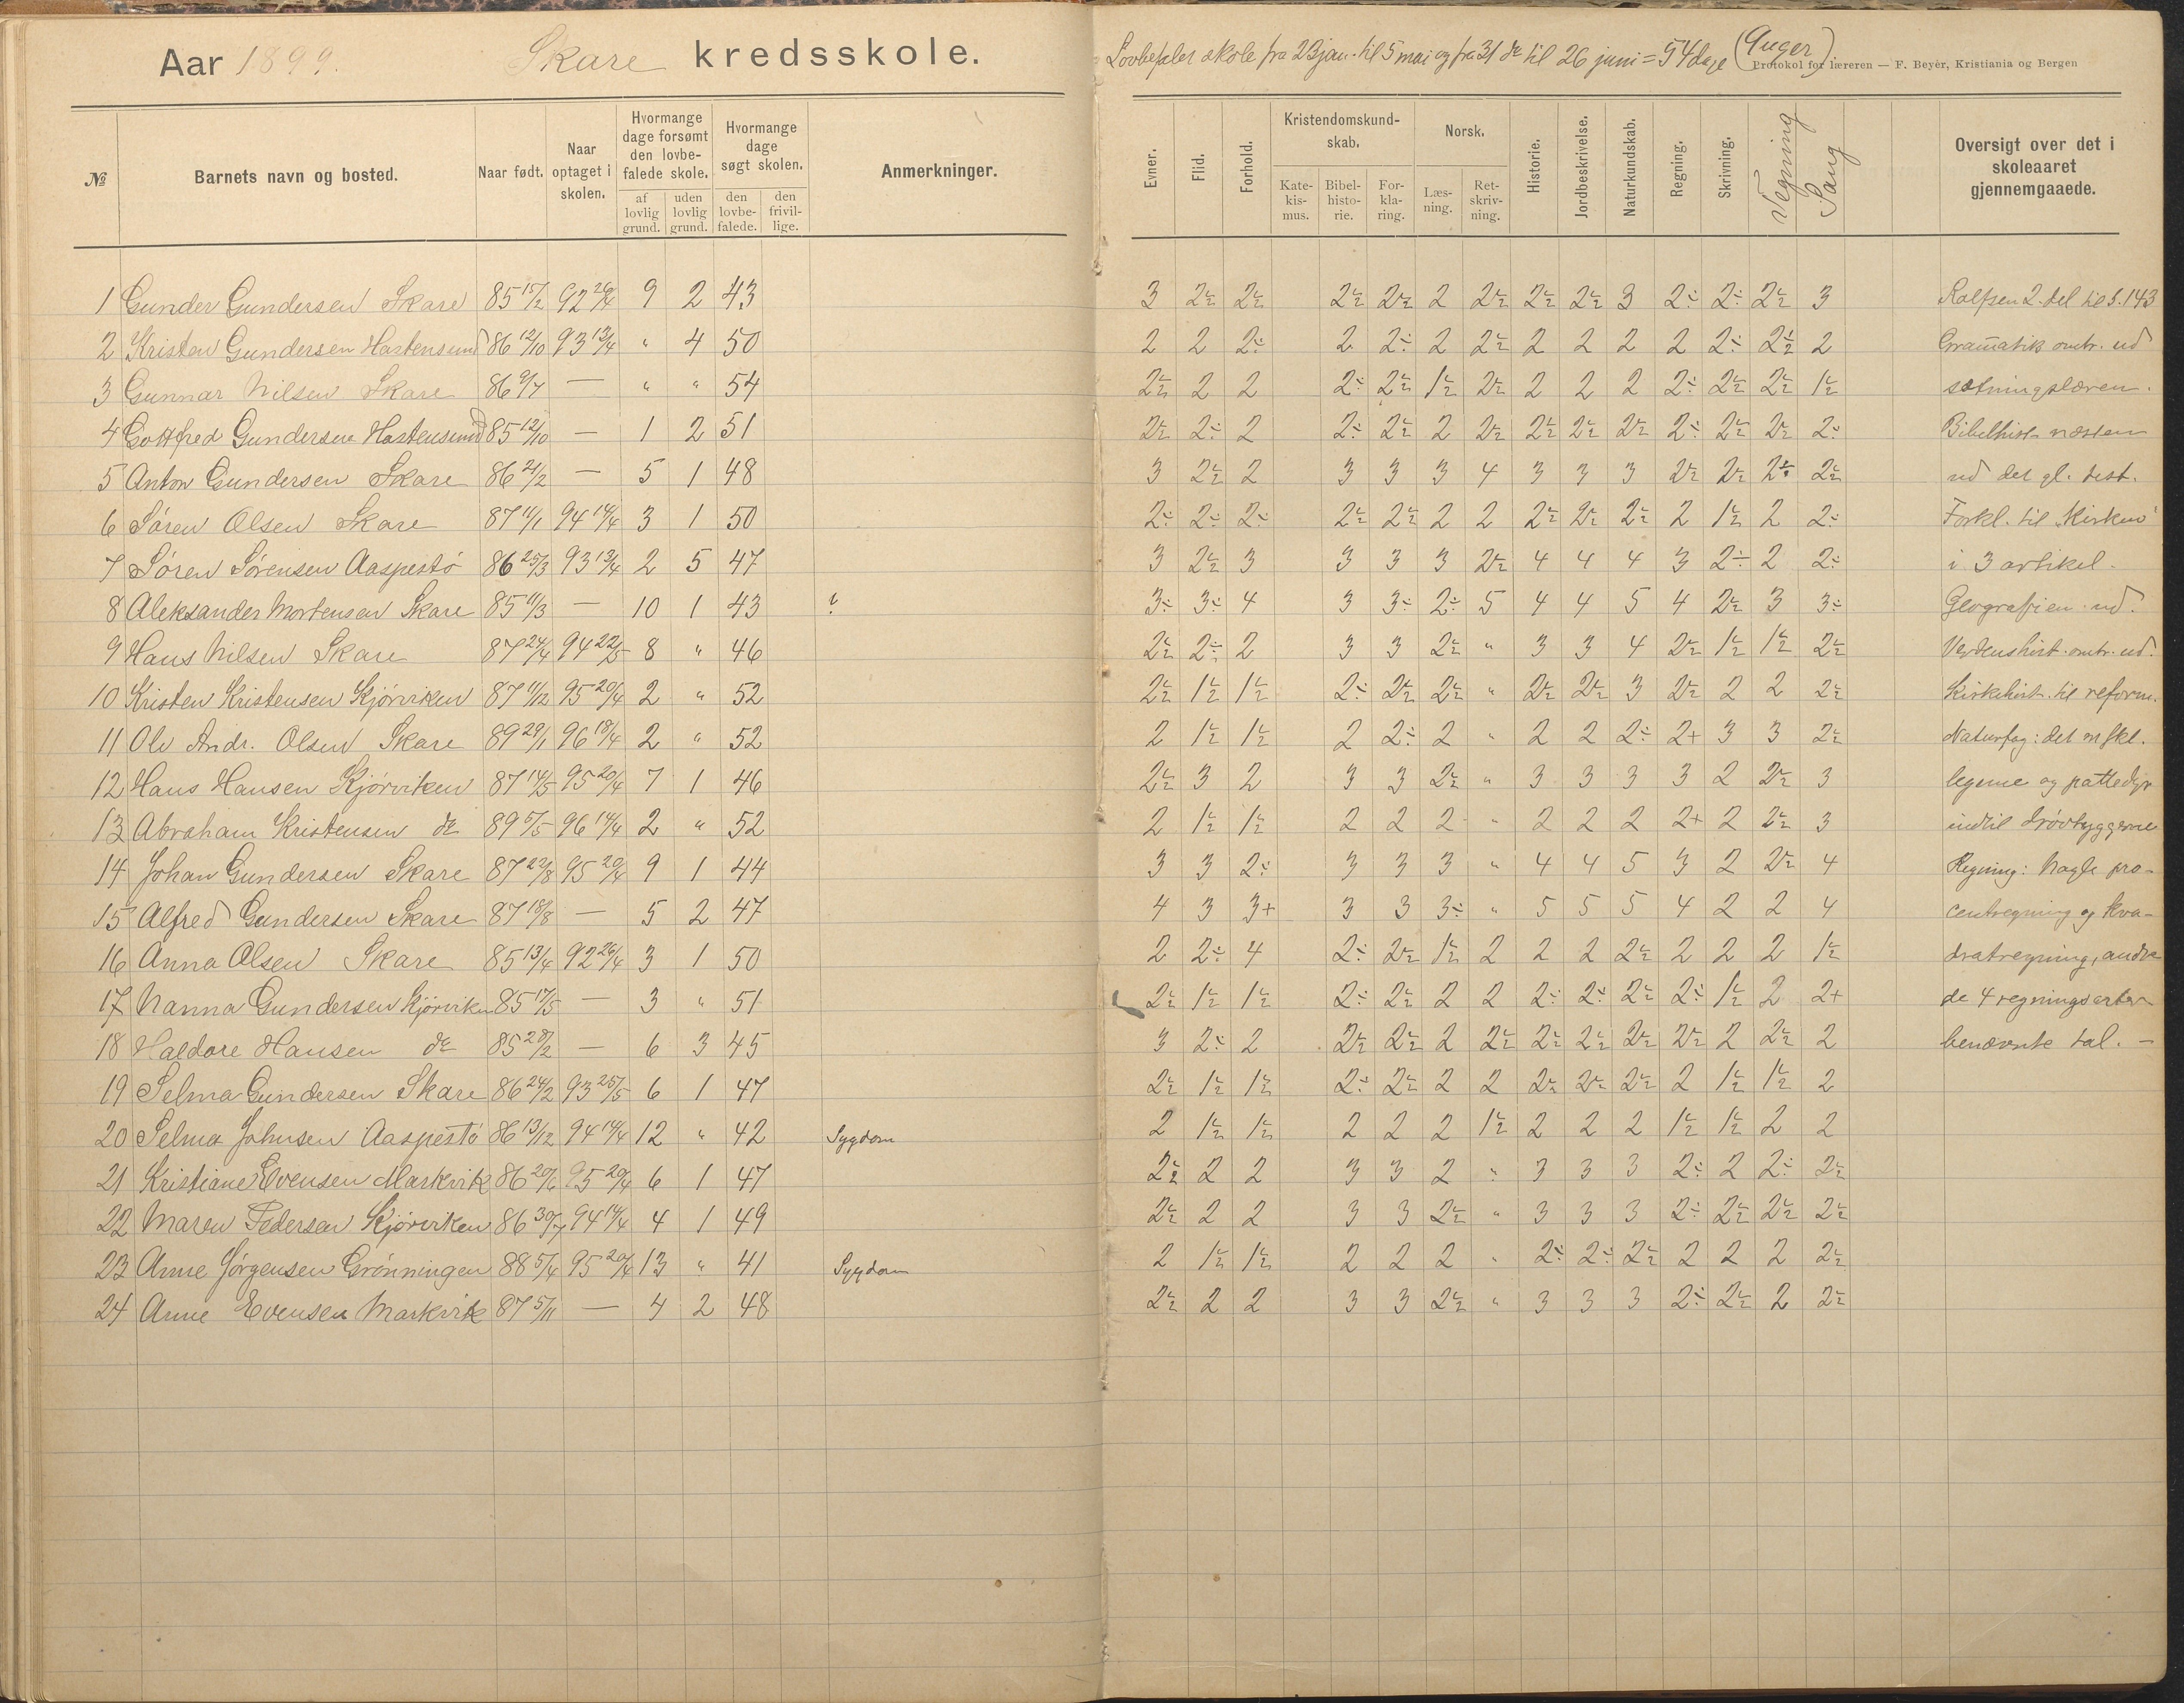 Aar 1899. Skare kredsskole.
№ Barnets navn og bosted. Naar født. Naar optaget i skolen. Hvormange dage forsømt den lovbefalede skole. af lovlig grund. uden lovlig grund. Hvormange dage søgt skolen. den lovbefalede. den frivillige. Anmerkninger.
1 Gunder Gundersen Skare 85 15/2 92 26/4 9 2 43
2 Kristen Gundersen Hartensund 86 12/10 93 13/4 " 4 50
3 Gunnar Nilsen Skare 86 9/7 — " " 54
4 Gottfred Gundersen Hartensund 85 12/10 — 1 2 51
5 Anton Gundersen Skare 86 21/2 — 5 1 48
6 Søren Olsen Skare 87 11/1 94 14/4 3 1 50
7 Søren Sørensen Aaspestø 86 25/3 93 13/4 2 5 47
8 Aleksander Mortensen Skare 85 11/3 — 10 1 43
9 Hans Nilsen Skare 87 24/4 94 22/5 8 " 46
10 Kristen Kristensen Kjørviken 87 11/12 95 20/4 2 " 52
11 Ole Andr. Olsen Skare 89 29/1 96 18/4 2 " 52
12 Hans Hansen Kjørviken 87 14/5 95 20/4 7 1 46
13 Abraham Kristensen do 89 5/5 96 14/4 2 " 52
14 Johan Gundersen Skare 87 22/8 95 20/4 9 1 44
15 Alfred Gundersen Skare 87 18/8 — 5 2 47
16 Anna Olsen Skare 85 13/4 92 26/4 3 1 50
17 Nanna Gundersen Kjørviken 85 17/5 — 3 " 51
18 Haldore Hansen do 85 28/2 — 6 3 45
19 Selma Gundersen Skare 86 24/2 93 25/5 6 1 47
20 Selma Johnsen Aaspestø 86 13/12 94 14/4 12 " 42 Sygdom
21 Kristiane Evensen Markvik 86 20/6 95 20/4 6 1 47
22 Maren Pedersen Kjørviken 86 30/7 94 14/4 4 1 49
23 Anne Jørgensen Grønningen 88 5/4 95 20/4 13 " 41 Sygdom
24 Anne Evensen Markvik 87 5/11 — 4 2 48
Lovbefalet skole fra 23 jan. til 5 mai og fra 31 do til 26 juni = 54 dage (9 uger)
Protokol for læreren — F. Beyer, Kristiania og Bergen
Evner. Flid. Forhold. Kristendomskundskab. Katekismus. Bibelhistorie. Forklaring. Norsk. Læsning. Retskrivning. Historie. Jordbeskrivelse. Naturkundskab. Regning. Skrivning. Tegning Sang Oversigt over det i skoleaaret gjennemgaaede.
3 2½ 2½ 2½ 2½ 2 2½ 2½ 2½ 3 2÷ 2÷ 2½ 3 Rolfsen 2. del til S. 143
2 2 2÷ 2 2÷ 2 2½ 2 2 2 2 2÷ 2½ 2 Gramatik omtr. ud
2½ 2 2 2÷ 2½ 1½ 2½ 2 2 2 2÷ 2½ 2½ 1½ sætningslæren.
2½ 2÷ 2 2÷ 2½ 2 2½ 2½ 2½ 2½ 2÷ 2½ 2½ 2÷ Bibelhist. næsten
3 2½ 2 3 3 3 4 3 3 3 2½ 2½ 2½ 2½ ud det gl. test.
2÷ 2÷ 2÷ 2½ 2½ 2 2 2½ 2½ 2½ 2 1½ 2 2÷ Forkl. til "Kirken"
3 2½ 3 3 3 3 2½ 4 4 4 3 2÷ 2 2÷ i 3 artikel.
3÷ 3÷ 4 3 3÷ 2÷ 5 4 4 5 4 2½ 3 3÷ Geografien ud.
2½ 2÷ 2 3 3 2½ " 3 3 4 2½ 1½ 1½ 2½ Verdenshist. omtr. ud.
2½ 1½ 1½ 2÷ 2½ 2½ " 2½ 2½ 3 2½ 2 2 2½ Kirkehist. til reform.
2 1½ 1½ 2 2÷ 2 " 2 2 2÷ 2+ 3 3 2½ Naturfag: det m skl.
2½ 3 2 3 3 2½ " 3 3 3 3 2 2½ 3 legeme og pattedyr
2 1½ 1½ 2 2 2 " 2 2 2 2+ 2 2½ 3 indtil drøvtyggerne
3 3 2÷ 3 3 3 " 4 4 5 3 2 2½ 4 Regning: Nogle pro-
4 3 3+ 3 3 3÷ " 5 5 5 4 2 2 4 centregning og kva-
2 2÷ 4 2÷ 2½ 1½ 2 2 2 2½ 2 2 2 1½ dratregning, andre
2½ 1½ 1½ 2÷ 2½ 2 2 2÷ 2÷ 2½ 2÷ 1½ 2 2+ de 4 regningsarter
3 2÷ 2 2½ 2½ 2 2½ 2½ 2½ 2½ 2½ 2 2½ 2 benævnte tal. —
2½ 1½ 1½ 2÷ 2½ 2 2 2½ 2½ 2½ 2 1½ 1½ 2
2 1½ 1½ 2 2 2 1½ 2 2 2 1½ 1½ 2 2
2½ 2 2 3 3 2 " 3 3 3 2÷ 2 2÷ 2½
2½ 2 2 3 3 2½ " 3 3 3 2÷ 2½ 2½ 2½
2 1½ 1½ 2 2 2 " 2÷ 2÷ 2½ 2 2 2 2½
2½ 2 2 3 3 2½ " 3 3 3 2÷ 2½ 2 2½